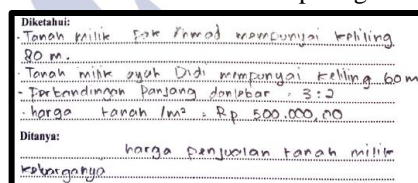 Diketahui:
- Tanah milik Pak Ahmad mempunyai keliling
80 m.
- Tanah milik ayah Didi mempunyai keliling 60 m
- Perbandingan Panjang dan lebar : 3:2
- harga tanah /m² : Rp 500.000,00
Ditanya:
harga penjualan tanah milik
keluarganya